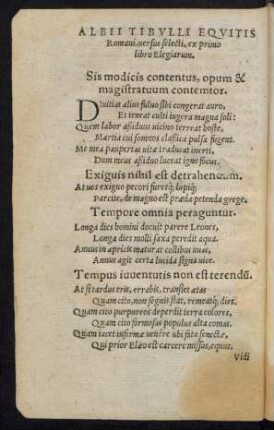 ALBII TIBVLLI EQVITIS
Romani, uersus selecti, ex primo
libro Elegiarum.
Sis modicis contentus, opum &
magistratuum contemtor.
Diuitias alius fuluo sibi congerat auro,
Et teneat culti iugera magna soli:
Quem labor aßiduus uicino terreat hoste,
Martia cui somnos classica pulsa fugent.
Me mea paupertas uitæ traducat inerti,
Dum meus aßiduo luceat igne focus.
Exiguis nihil est detrahendum.
At uos exiguo pecori furesq́; lupiq́;
Parcite, de magno est præda petenda grege.
Tempore omnia peraguntur.
Longa dies homini docuit parere Leones,
Longa dies molli saxa peredit aqua.
Annus in apricis maturat collibus uuas,
Annus agit certa lucida signa uice.
Tempus iuuentutis non est terendũ.
At si tardus eris, errabis, transiet ætas
Quam cito, non segnis stat, remeatq́; dies.
Quam cito purpureos deperdit terra colores,
Quam cito formosas populus alta comas.
Quam iacet infirmæ uenêre ubi fata senectæ,
Qui prior Elæo est carcere missus, equus.
Vidi